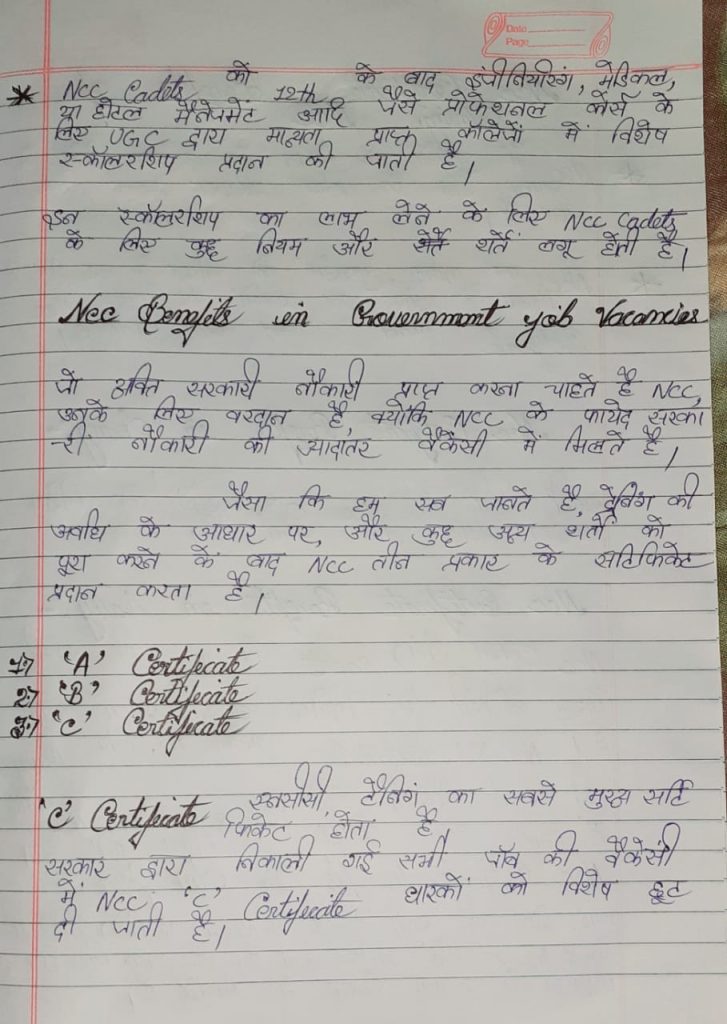 Date
Page
* NCC Cadets को 12th के बाद इंजीनियरिंग, मेडिकल,
या होटल मैनेजमेंट आदि जैसे प्रोफेशनल कोर्स के
लिए UGC द्वारा मान्यता प्राप्त कॉलेजों में विशेष
स्कॉलरशिप प्रदान की जाती है।
इन स्कॉलरशिप का लाभ लेने के लिए NCC Cadets,
के लिए कुछ नियम और शर्तें लगू होती है।
NCC Benefits in Government job Vacancies
जो व्यक्ति सरकारी नौकारी प्राप्त करना चाहते है NCC,
उनके लिए वरदान है, क्योंकि NCC के फायेद सरका
-री नौकारी की ज्यादातर वैकैंसी में मिलते है।
जैसा कि हम सब जानते है, ट्रेनिंग की
अवधि के आधार पर, और कुछ अन्य शर्तो को
पूरा करने के बाद NCC तीन प्रकार के सर्टिफिकेट
प्रदान करता है।
1.) 'A' Certificate
2.) 'B' Certificate
3.) 'C' Certificate
'C' Certificate एनसीसी, ट्रेनिगं का सबसे मुख्य सर्टि
फिकेट होता है,
सरकार द्वारा निकाली गई सभी जॉब की वैकेंसी
में NCC 'C' Certificate धारकों को विशेष छूट
दी जाती है।